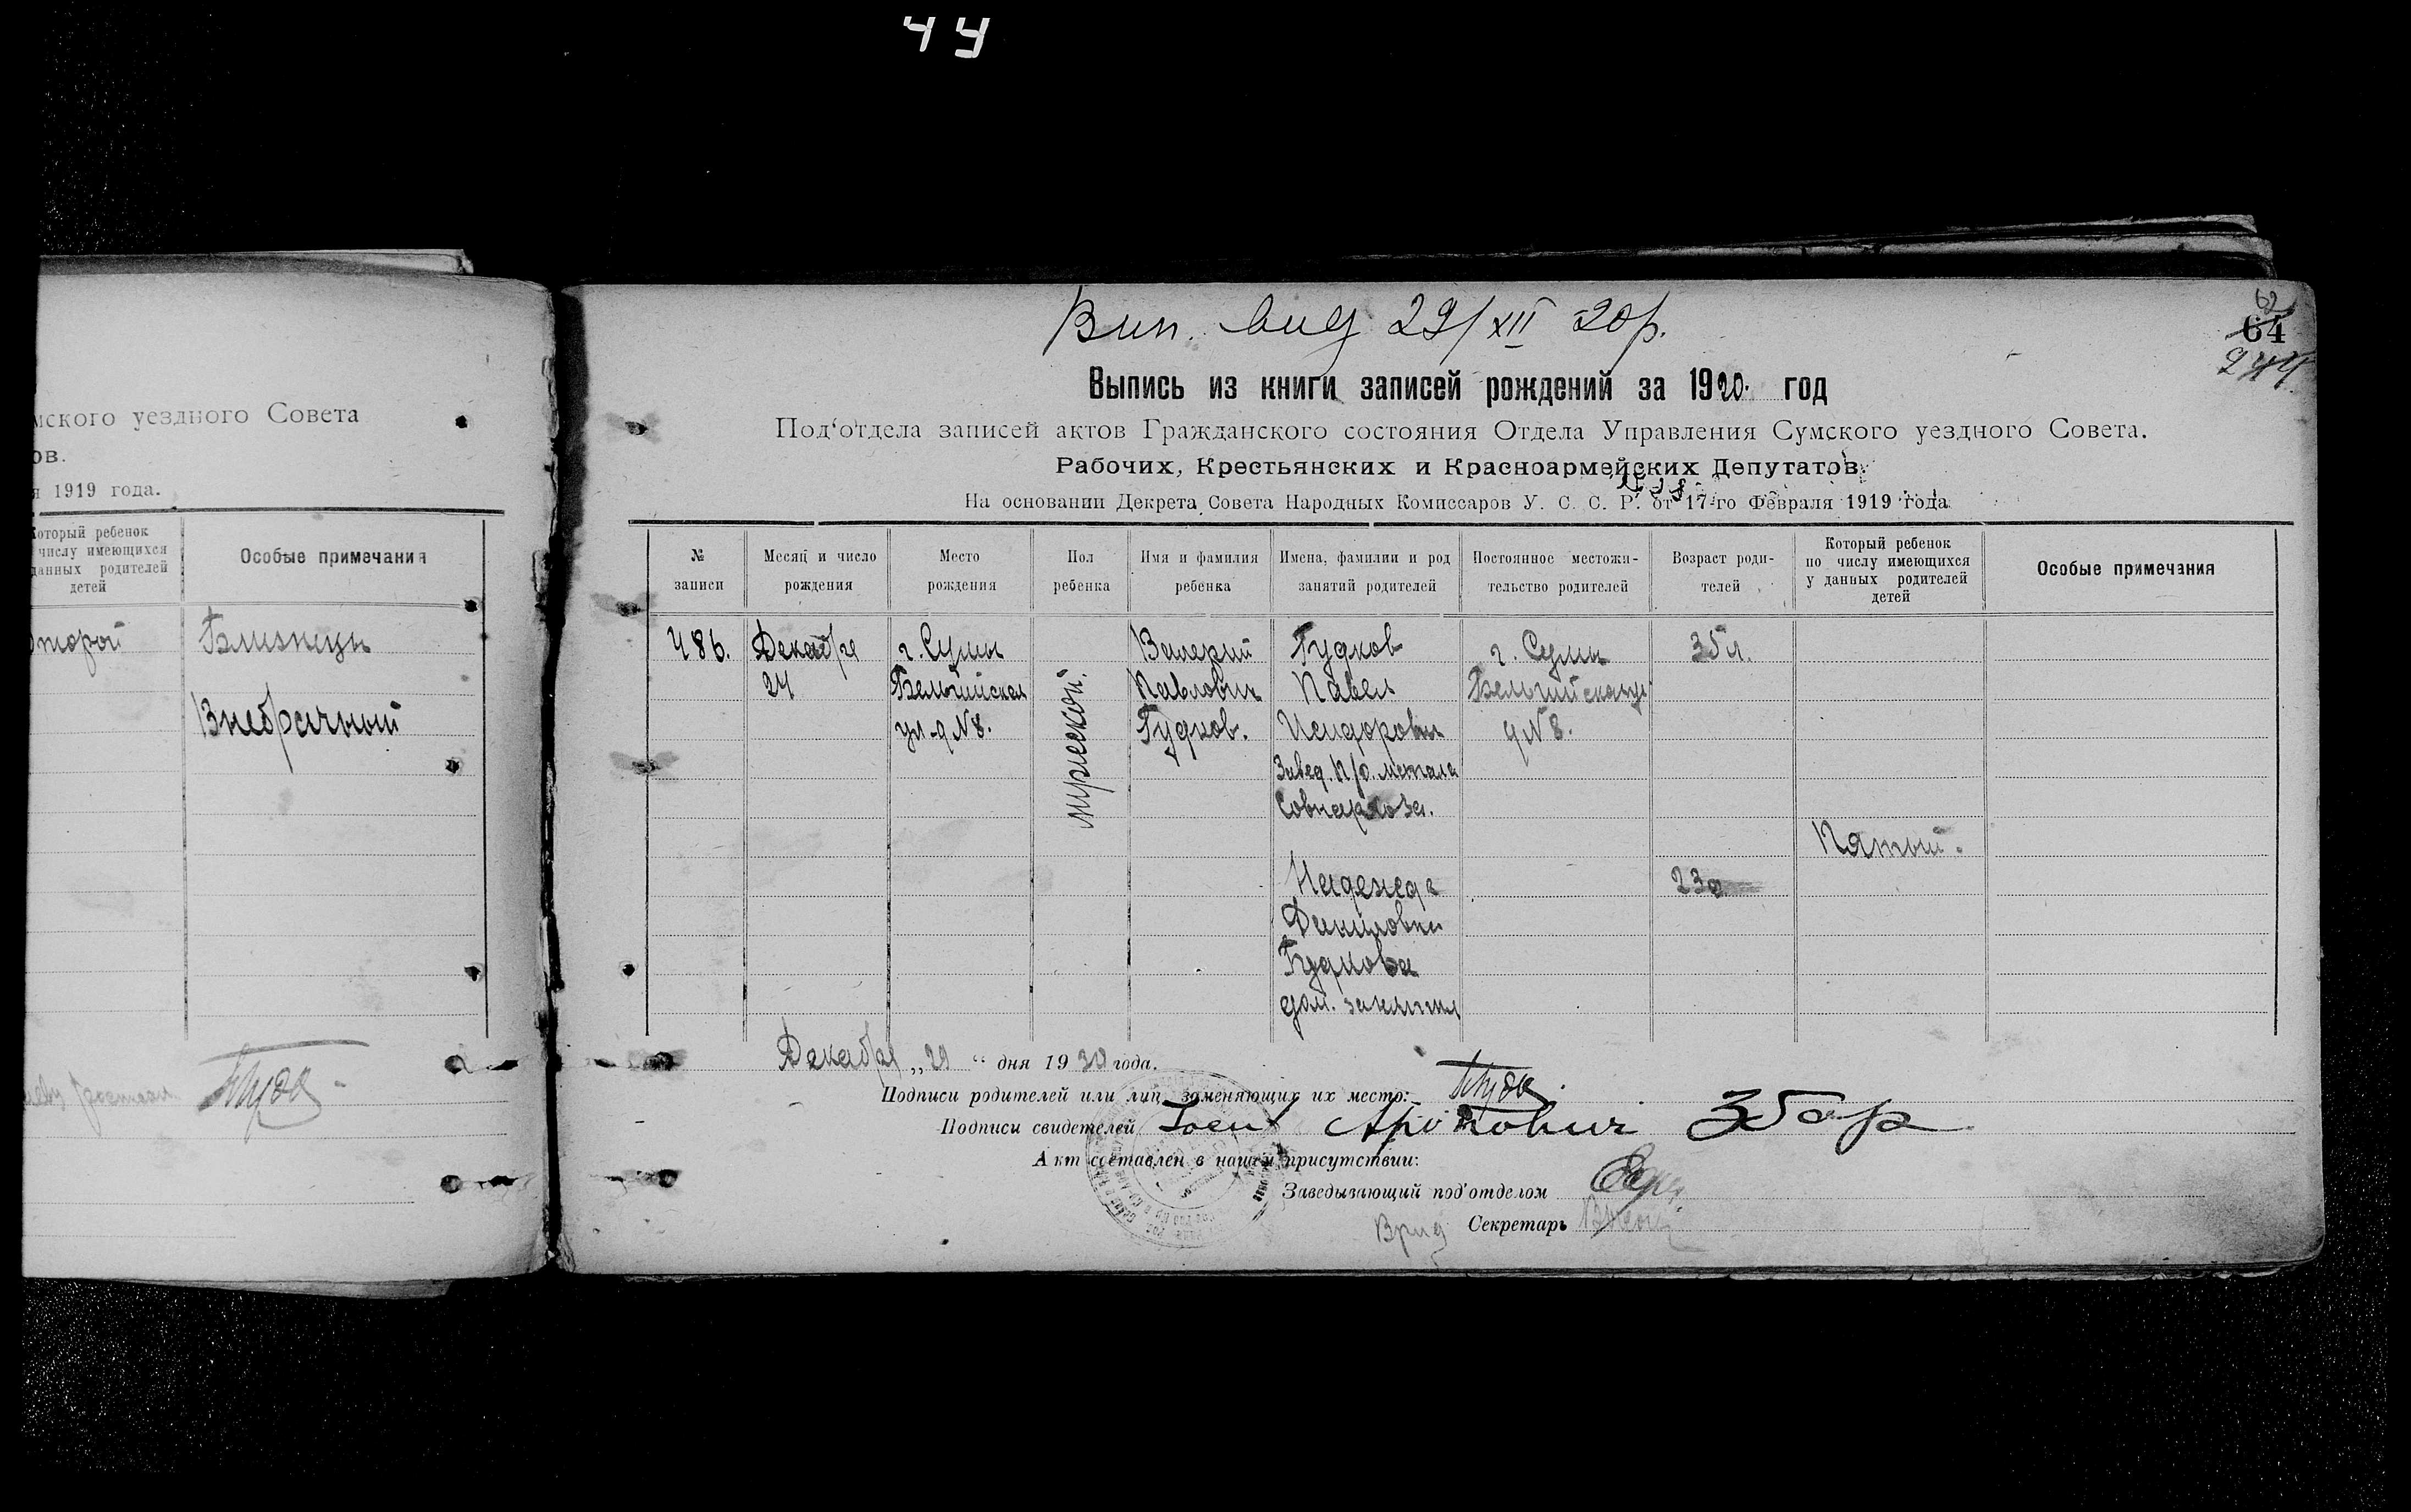 44
мского уездного Совета
ов.
я 1919 года.
Который ребенок
числу имеющихся
данных родителей
детей
Особые примечания
второй
Близнец
Внебрачный
Вип. вид 29/XII 20р.
62
64
244
Выпись из книги записей рождений за 1920 год
Под‘отдела записей актов Гражданского состояния Отдела Управления Сумского уездного Совета.
Рабочих, Крестьянских и Красноармейских Депутатов.
На основании Декрета Совета Народных Комиссаров У. С. С. Р. от 17-го Февраля 1919 года
№
записи
Месяц и число
рождения
Место
рождения
Пол
ребенка
Имя и фамилия
ребенка
Имена, фамилии и род
занятий родителей
Постоянное местожи-
тельство родителей
Возраст роди-
телей
Который ребенок
по числу имеющихся
у данных родителей
детей
Особые примечания
486.
Декабря
24
г. Сумы
Бельгийская
ул. д №8.
мужеской.
Валерий
Павлович
Гудков.
Гудков
Павел
Исидорович
Завед. п/о. метала
Совнархоза.
Надежда
Даниловна
Гудкова
дом. занятия
г. Сумы
Бельгийская ул
д №8.
35 л.
23
Пятый.
Декабря „29“ дня 1920 года.
Подписи родителей или лиц, заменяющих их место:
Подписи свидетелей
Акт составлен в нашем присутствии:
Заведывающий под‘отделом
Врид Секретарь